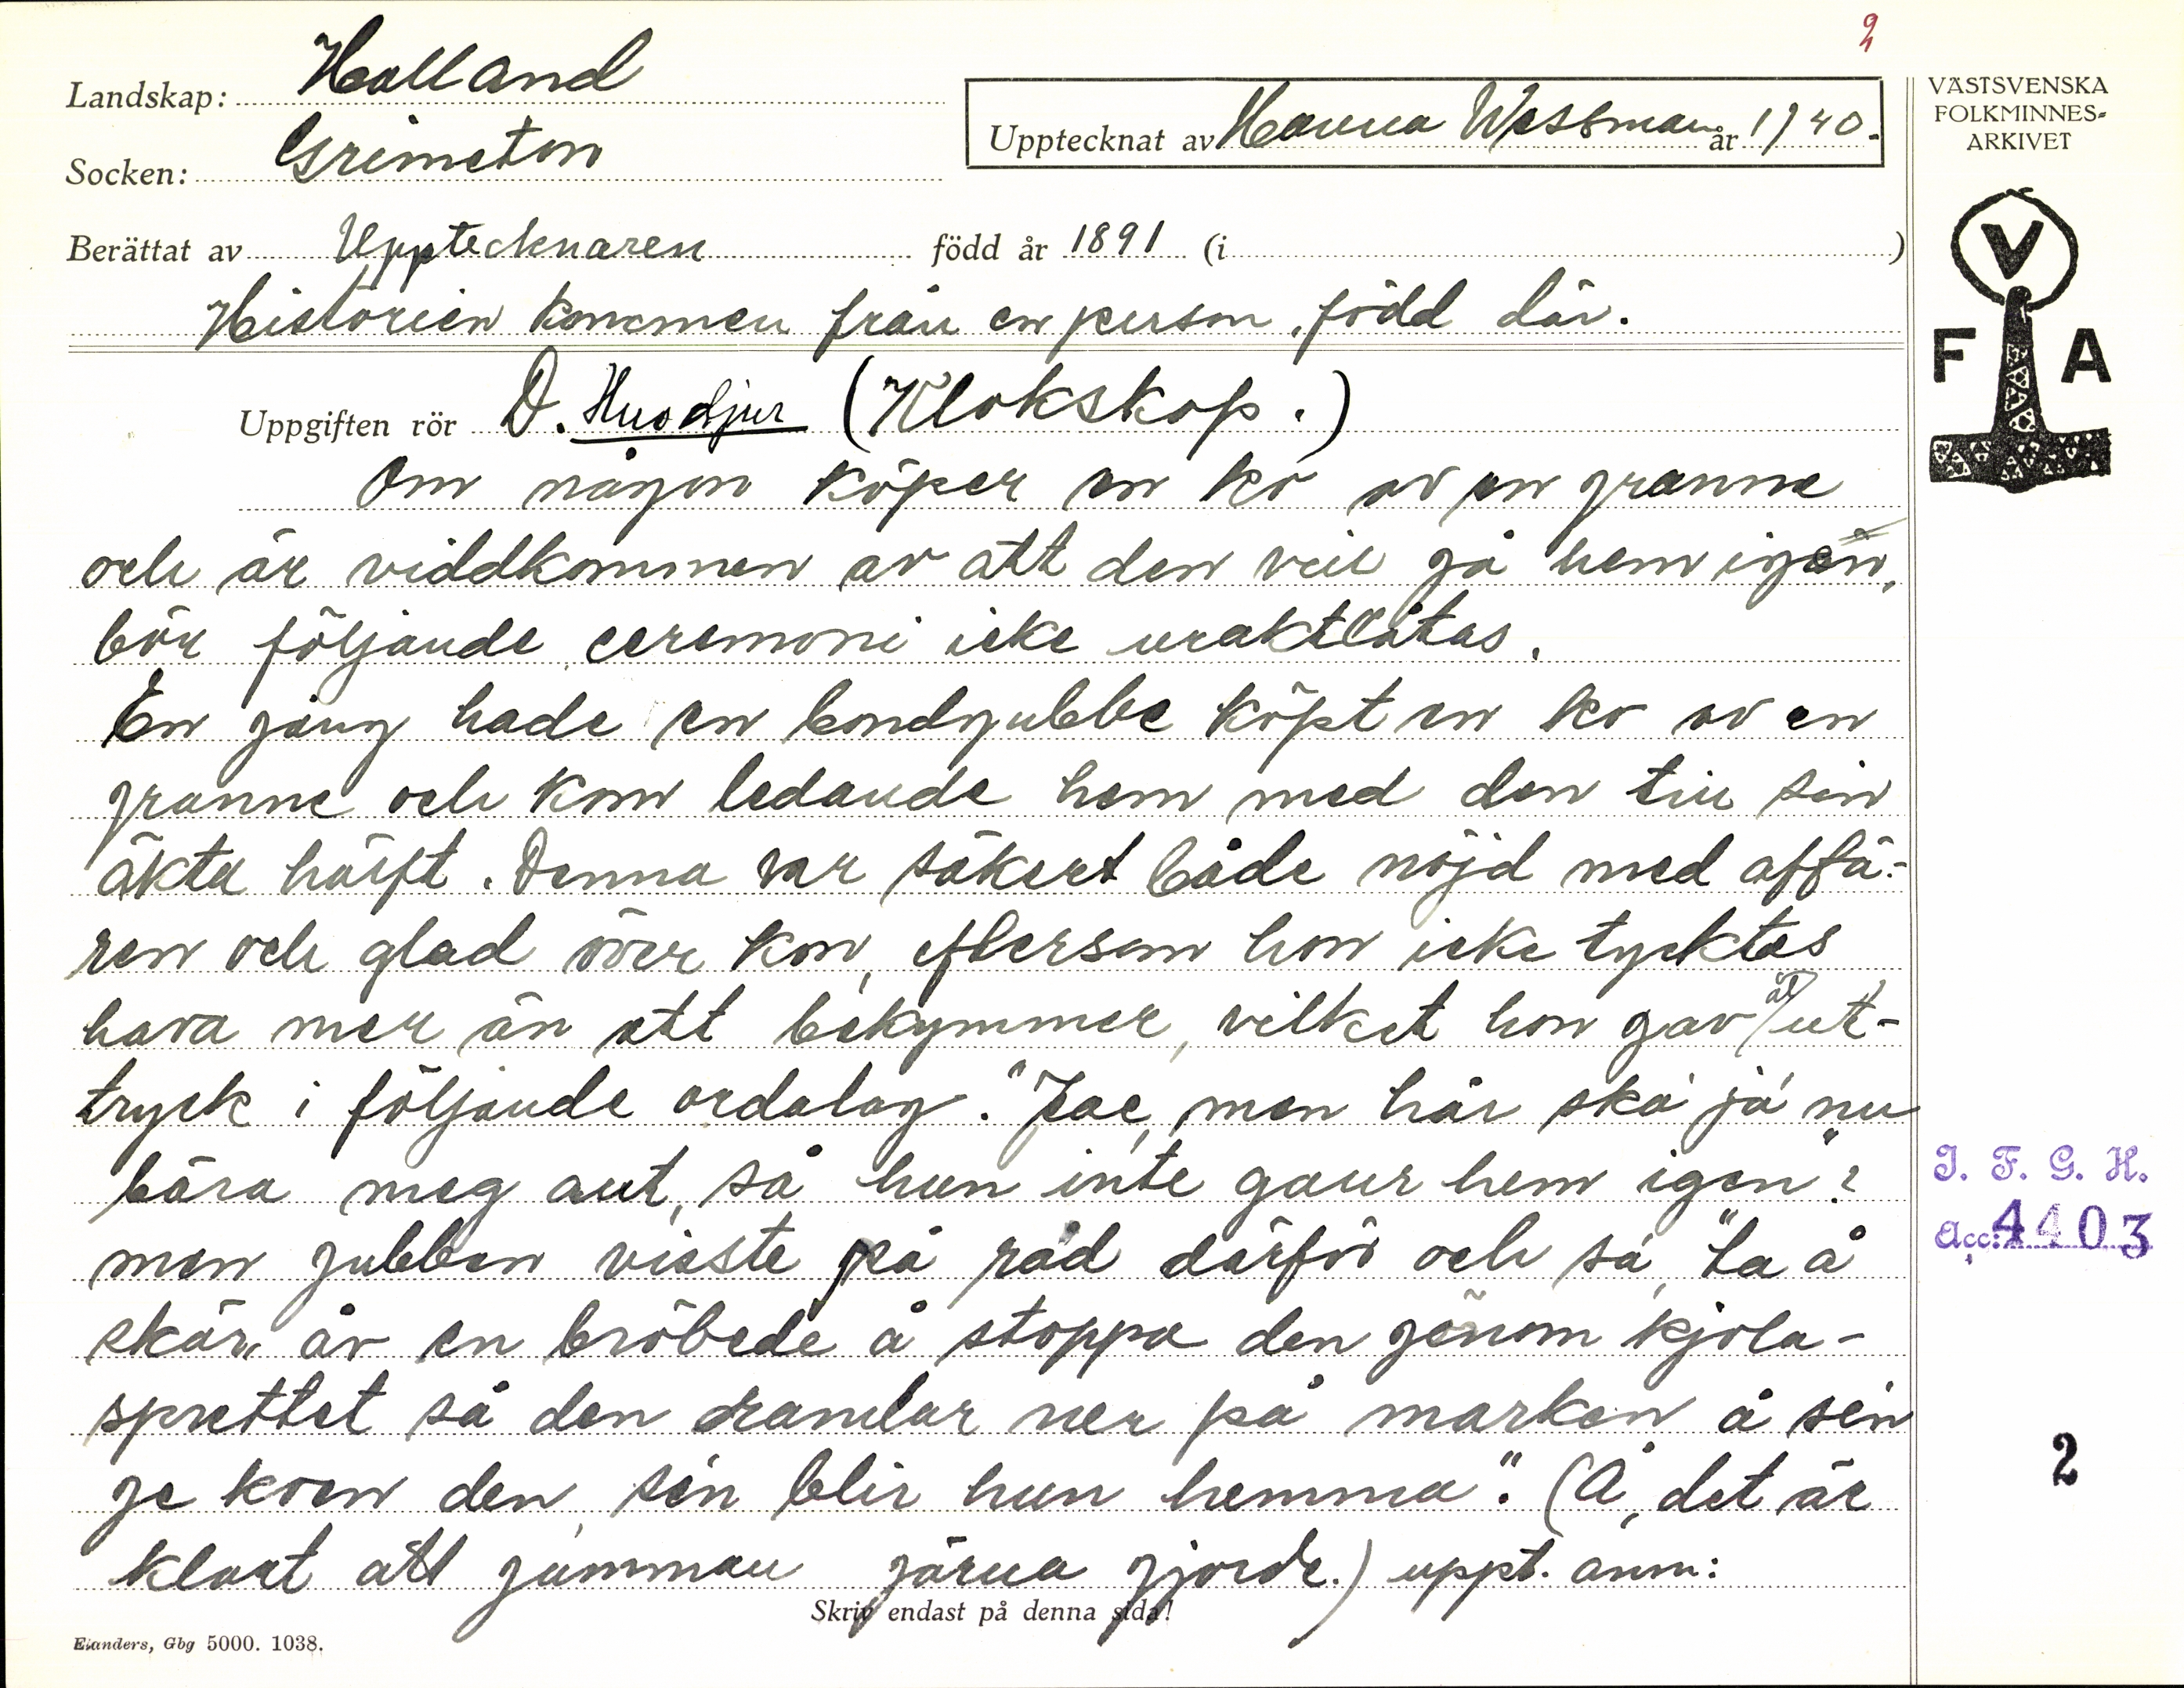 2
Landskap: Halland
Upptecknat av Hanna Wessman år 1940.
Socken: Grimeton
Berättat av Upptecknaren född år 1891 (i )
Historien kommen från en person, född där.
Uppgiften rör D. Husdjur (Klokskap.)
Om någon köper en ko av en granne
och är viddkommen av att den vill gå hem igen,
bör följande ceremoni icke uraktlåtas.
En gång hade en bondgubbe köpt en ko av en
granne och kom ledande hem med den till sin
äkta hälft. Denna var säkert både nöjd med affä-
ren och glad över kon, eftersom hon icke tycktes
hava mer än ett bekymmer, vilket hon gav åt ut-
tryck i följande ordalag. "Jae, men här ska ja nu
bära meg aut, så hun inte gaur hem igen"?
men gubben visste på råd därför och sa, "ta å
skär av en bröbede å stoppa den genom kjola-
sprettet så den dramlar ner på marken å sen
ge koen den, sen blir hun hemma". (Å, det är
klart att gumman gärna gjorde.) uppt. anm:
Skriv endast på denna sida!
Elanders, Gbg 5000. 1038.
VÄSTSVENSKA
FOLKMINNES-
ARKIVET
V
F A
I. F. G. H.
Acc: 4403
2